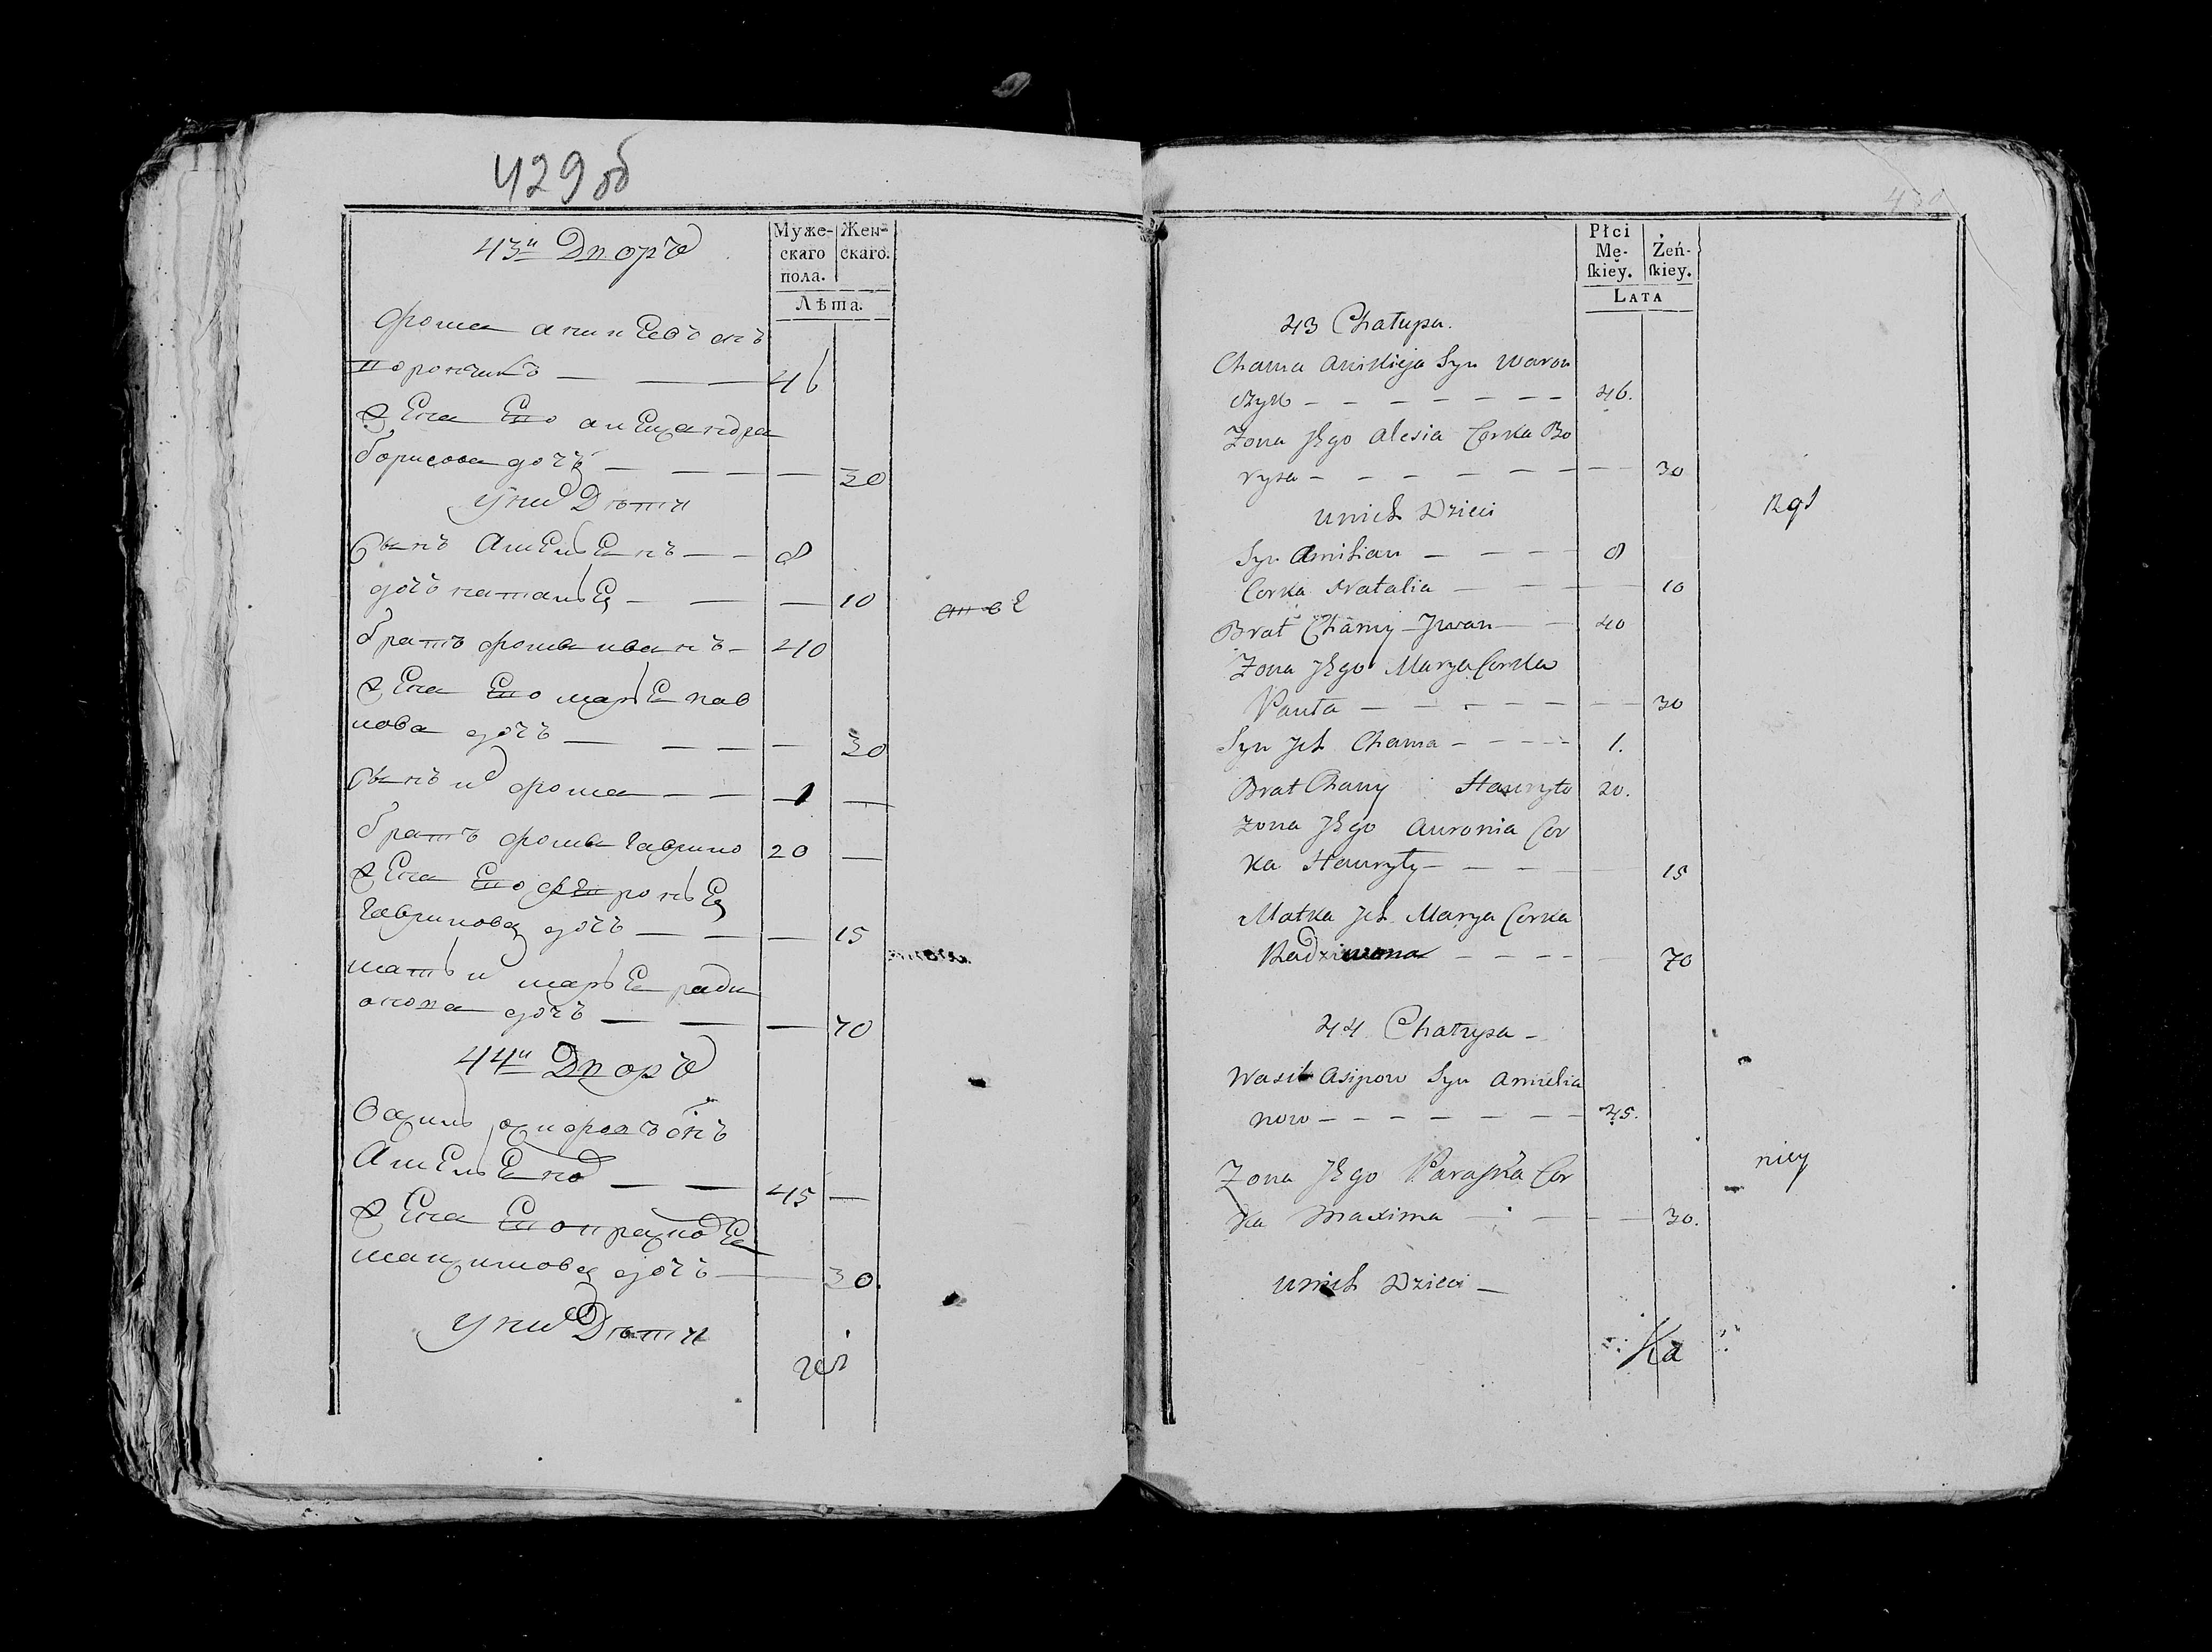 429 об
43й Дворъ
Муже-
скаго
пола.
Жен-
скаго.
Лѣта.
Фома аникеевъ снъ
ворончикъ — — — 46
жена Его алеξандра
борисова дочь — — — — 30
у них Дѣти
Сынъ Амельѧнъ — — 8
дочь наталья — — — 10
братъ фомы иванъ — 40
жена Его марья пав
лова дочь — — — — 30
Сынъ их фома — — 1 —
братъ фомы гаврило 20 —
жена Его
гаврилова дочь — — — 15
мать их марья ради
онова дочь — — — 70
44й Дворъ
Василь осиповъ снъ
Амельѧнов — — 45 —
жена Его
маξимова дочь — — 30.
у них Дѣти
430
Płci
Mę-
ſkiey.
Żeń-
ſkiey.
LATA
43 Chałupa.
Chama Anikieja Syn Waron
czyk — — — — — — — 46.
Zona Jego Alesia Corka Bo
rysa — — — — — — — 30
unich Dzieci
Syn Amilian — — — — 8
Corka Natalia — — — — 10
Brat Chamy — Jwan — — 40
Zona Jego Marya Corka
Pauła — — — — — — — 30
Syn Jch Chama — — — — 1.
Brat Chamy Hauryło 20.
Zona Jego Auronia Cor
ka Hauryły — — — — — 15
Matka Jch Marya Corka
Radziwona — — — — — 70
44 Chałupa —
Wasil Asipow Syn Amielia
now — — — — — — — 45.
Zona Jego Paraſka Cor
ka Maxima — — — — 30.
unich Dzieci —
Ka